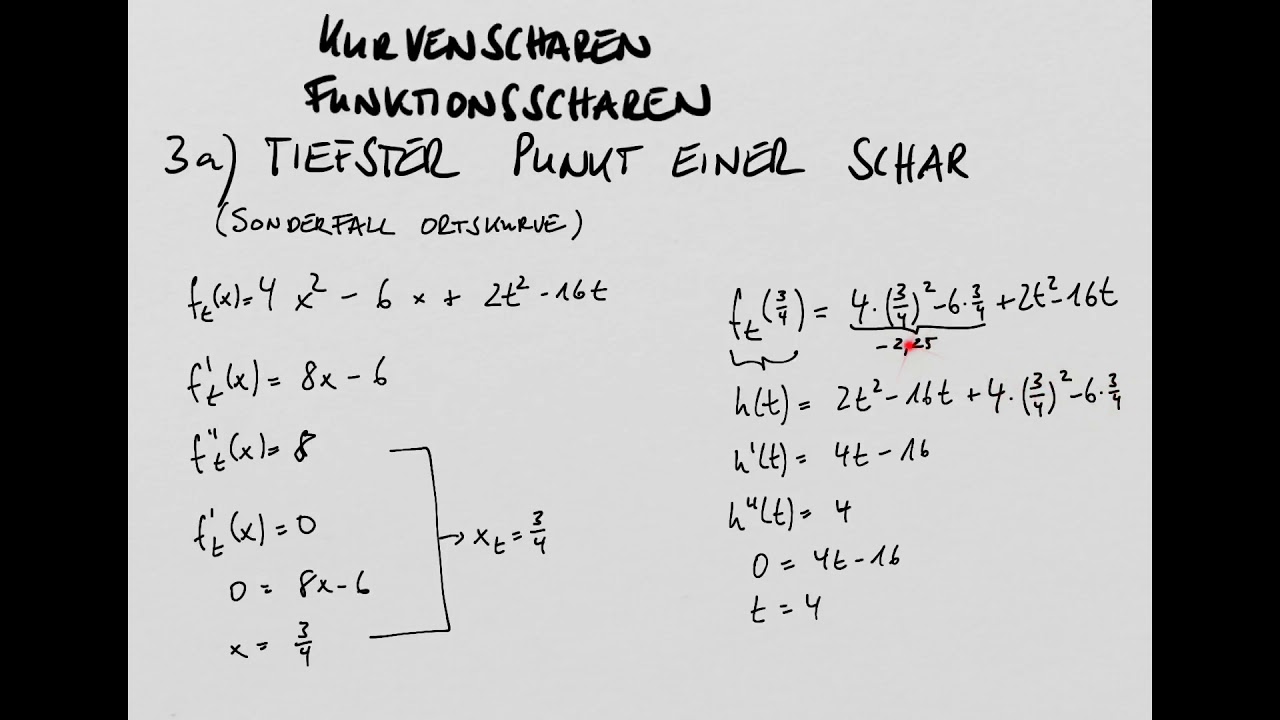 KURVENSCHAREN
FUNKTIONSSCHAREN
3a) TIEFSTER PUNKT EINER SCHAR
(SONDERFALL ORTSKURVE)
f_t(x) = 4 x² − 6 x + 2t² − 16t
f'_t(x) = 8x − 6
f''_t(x) = 8
f'_t(x) = 0
0 = 8x − 6
x = 3/4
→ x_t = 3/4
f_t(3/4) = 4·(3/4)² − 6·3/4 + 2t² − 16t
−2,25
h(t) = 2t² − 16t + 4·(3/4)² − 6·3/4
h'(t) = 4t − 16
h''(t) = 4
0 = 4t − 16
t = 4